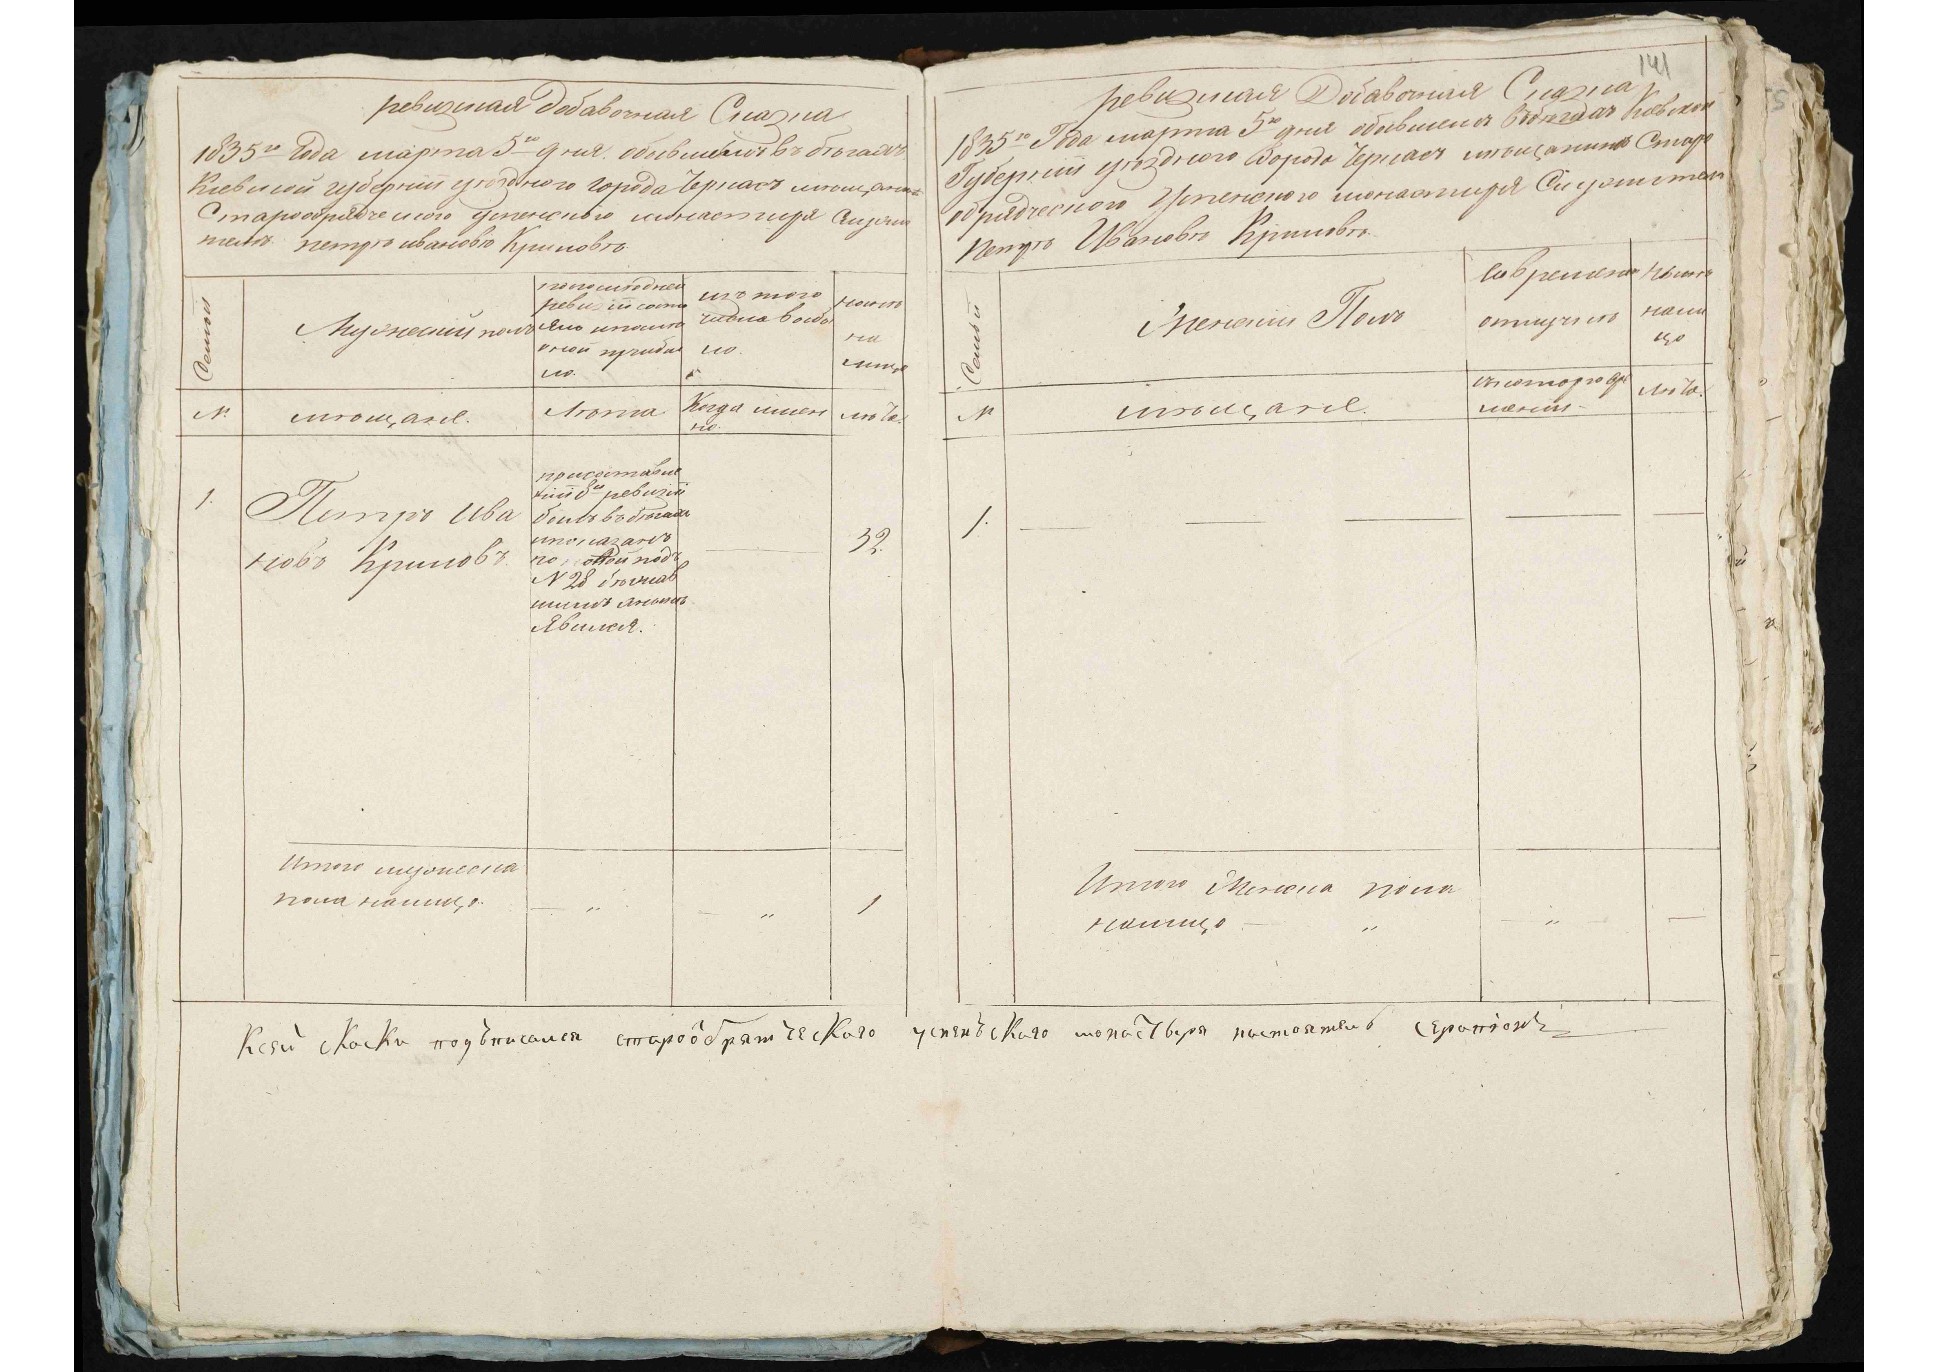 ревизская Добавочная Сказка
1835го Года марта 5го дня. обывшемъ въ бѣгахъ
Киевской губернiи уѣздного города Черкасъ мѣщанинѣ
Старообрядческого успенского монастиря Служи
телѣ петрѣ ивановѣ Криловѣ
Семьи
Мужескiй полъ
попоследней
ревизiи состо
яло ипослѣ
оной прибы
ло.
изъ того
числа выбы
ло.
нынѣ
на
лице
№
мѣщане.
Лѣта
Когда имен
но.
лѣта.
1.
Петръ Ива
новъ Криловъ
присоставле
нiи 8й ревизiи
былъ въ бѣгахъ
ипоказанъ
по оной подъ
№ 28 бѣжав
шимъ нынѣ
Явился.
32.
Итого мужеска
пола налицо.
1
141
ревизская Добавочная Сказка
1835го Года марта 5го дня обывшемъ въбѣгахъ Киевской
Губернiи уѣздного Города Черкасъ мѣщанинѣ Старо
обрядческого Успенского монастиря Служителѣ
Петрѣ Ивановѣ Криловѣ.
Семьи
Женскiй Полъ
Современно
отлучилъ
Нынѣ
нали
цо
№
мѣщане.
лѣта.
1.
Итого Женска пола
налицо
Ксей скаски подъписался старообрятческаго успенъскаго монастыря настоятель серапiонъ